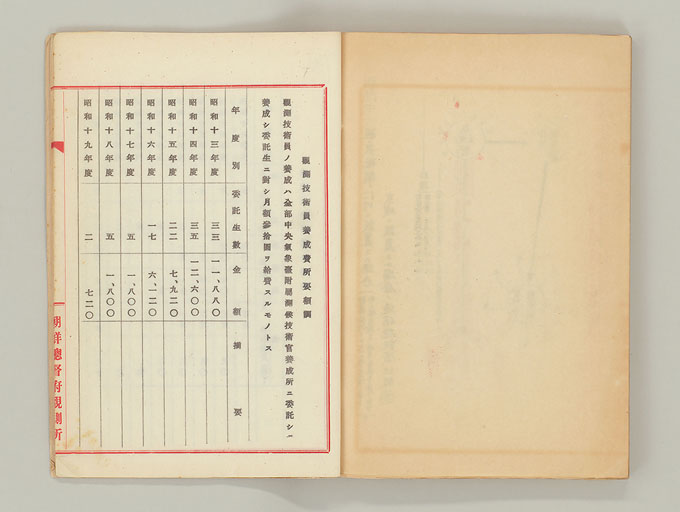 觀測技術員養成費所要額調
觀測技術員ノ養成ハ全部中央氣象臺附屬測候技術官養成所ニ委託シ一
養成シ委託生ニ對シ月額參拾圓ヲ給費スルモノトス
年度別 委託生數 金額 摘要
昭和十三年度 三三 一一、八八〇
昭和十四年度 三五 一二、六〇〇
昭和十五年度 二二 七、九二〇
昭和十六年度 一七 六、一二〇
昭和十七年度 五 一、八〇〇
昭和十八年度 五 一、八〇〇
昭和十九年度 二 七二〇
朝鮮總督府觀測所